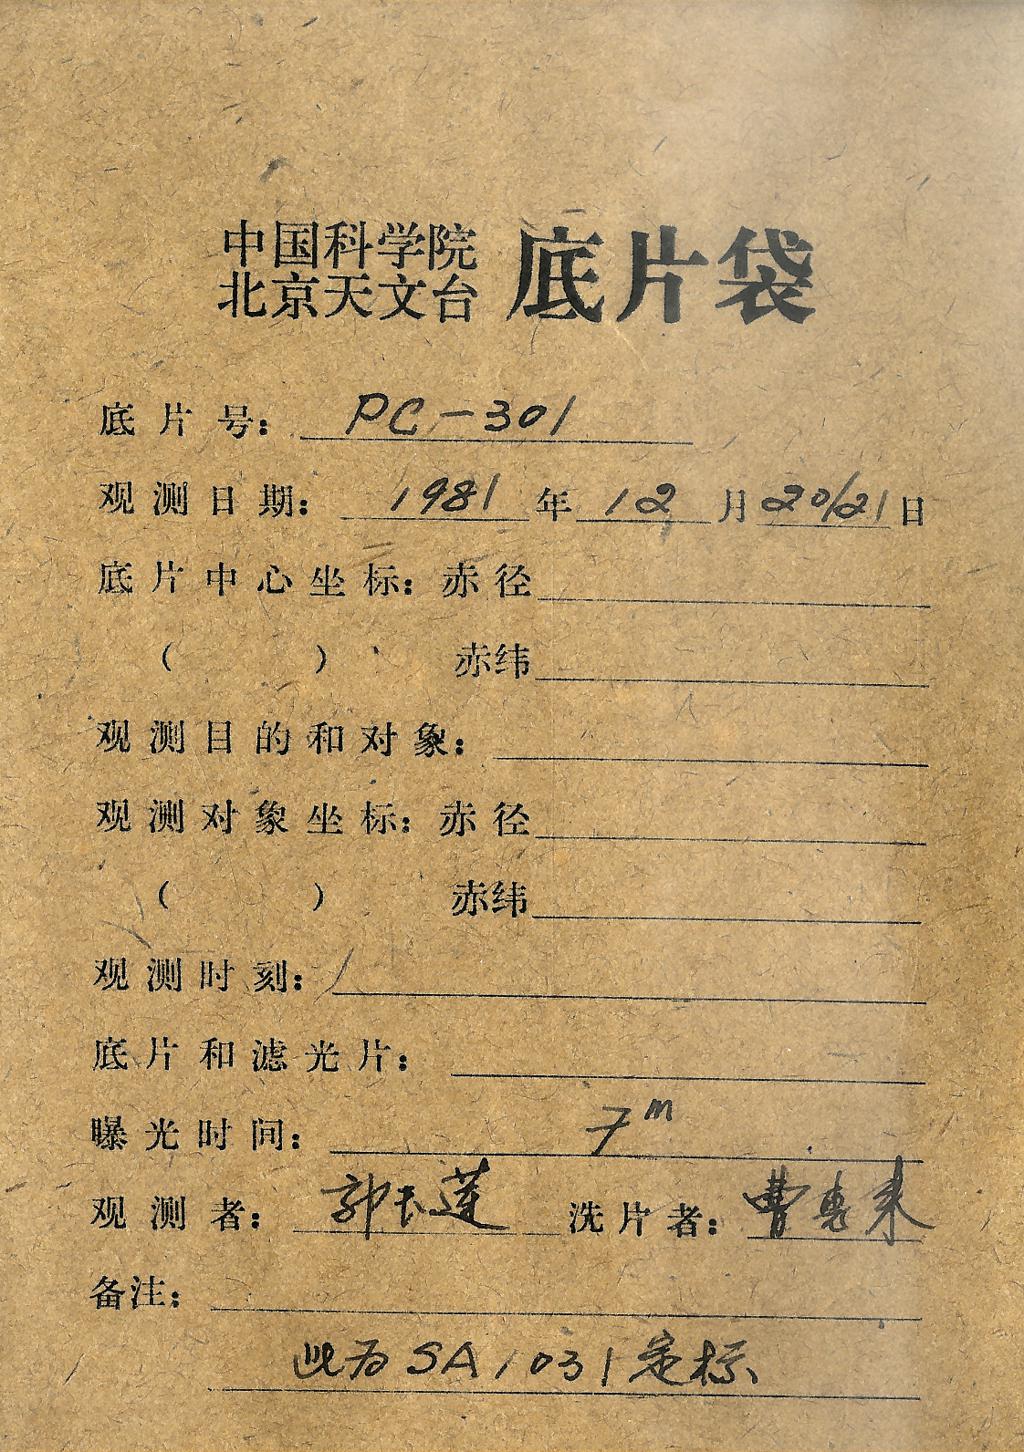 中国科学院
北京天文台 底片袋
底片号: PC-301
观测日期: 1981年12月20/21日
底片中心坐标: 赤径
( ) 赤纬
观测目的和对象:
观测对象坐标: 赤径
( ) 赤纬
观测时刻:
底片和滤光片:
曝光时间: 7m
观测者: 郭玉莲 洗片者: 曹惠来
备注:
此为SA1031定标